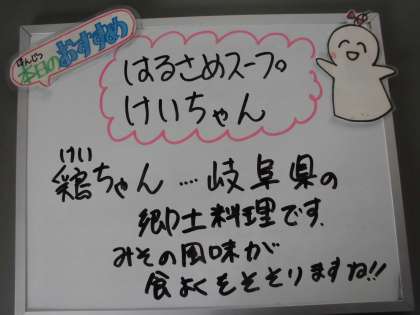 ほんじつ
本日のおすすめ
はるさめスープ
けいちゃん
けい
鶏ちゃん …. 岐阜県の
郷土料理です.
みその風味が
食よくをそそりますね!!